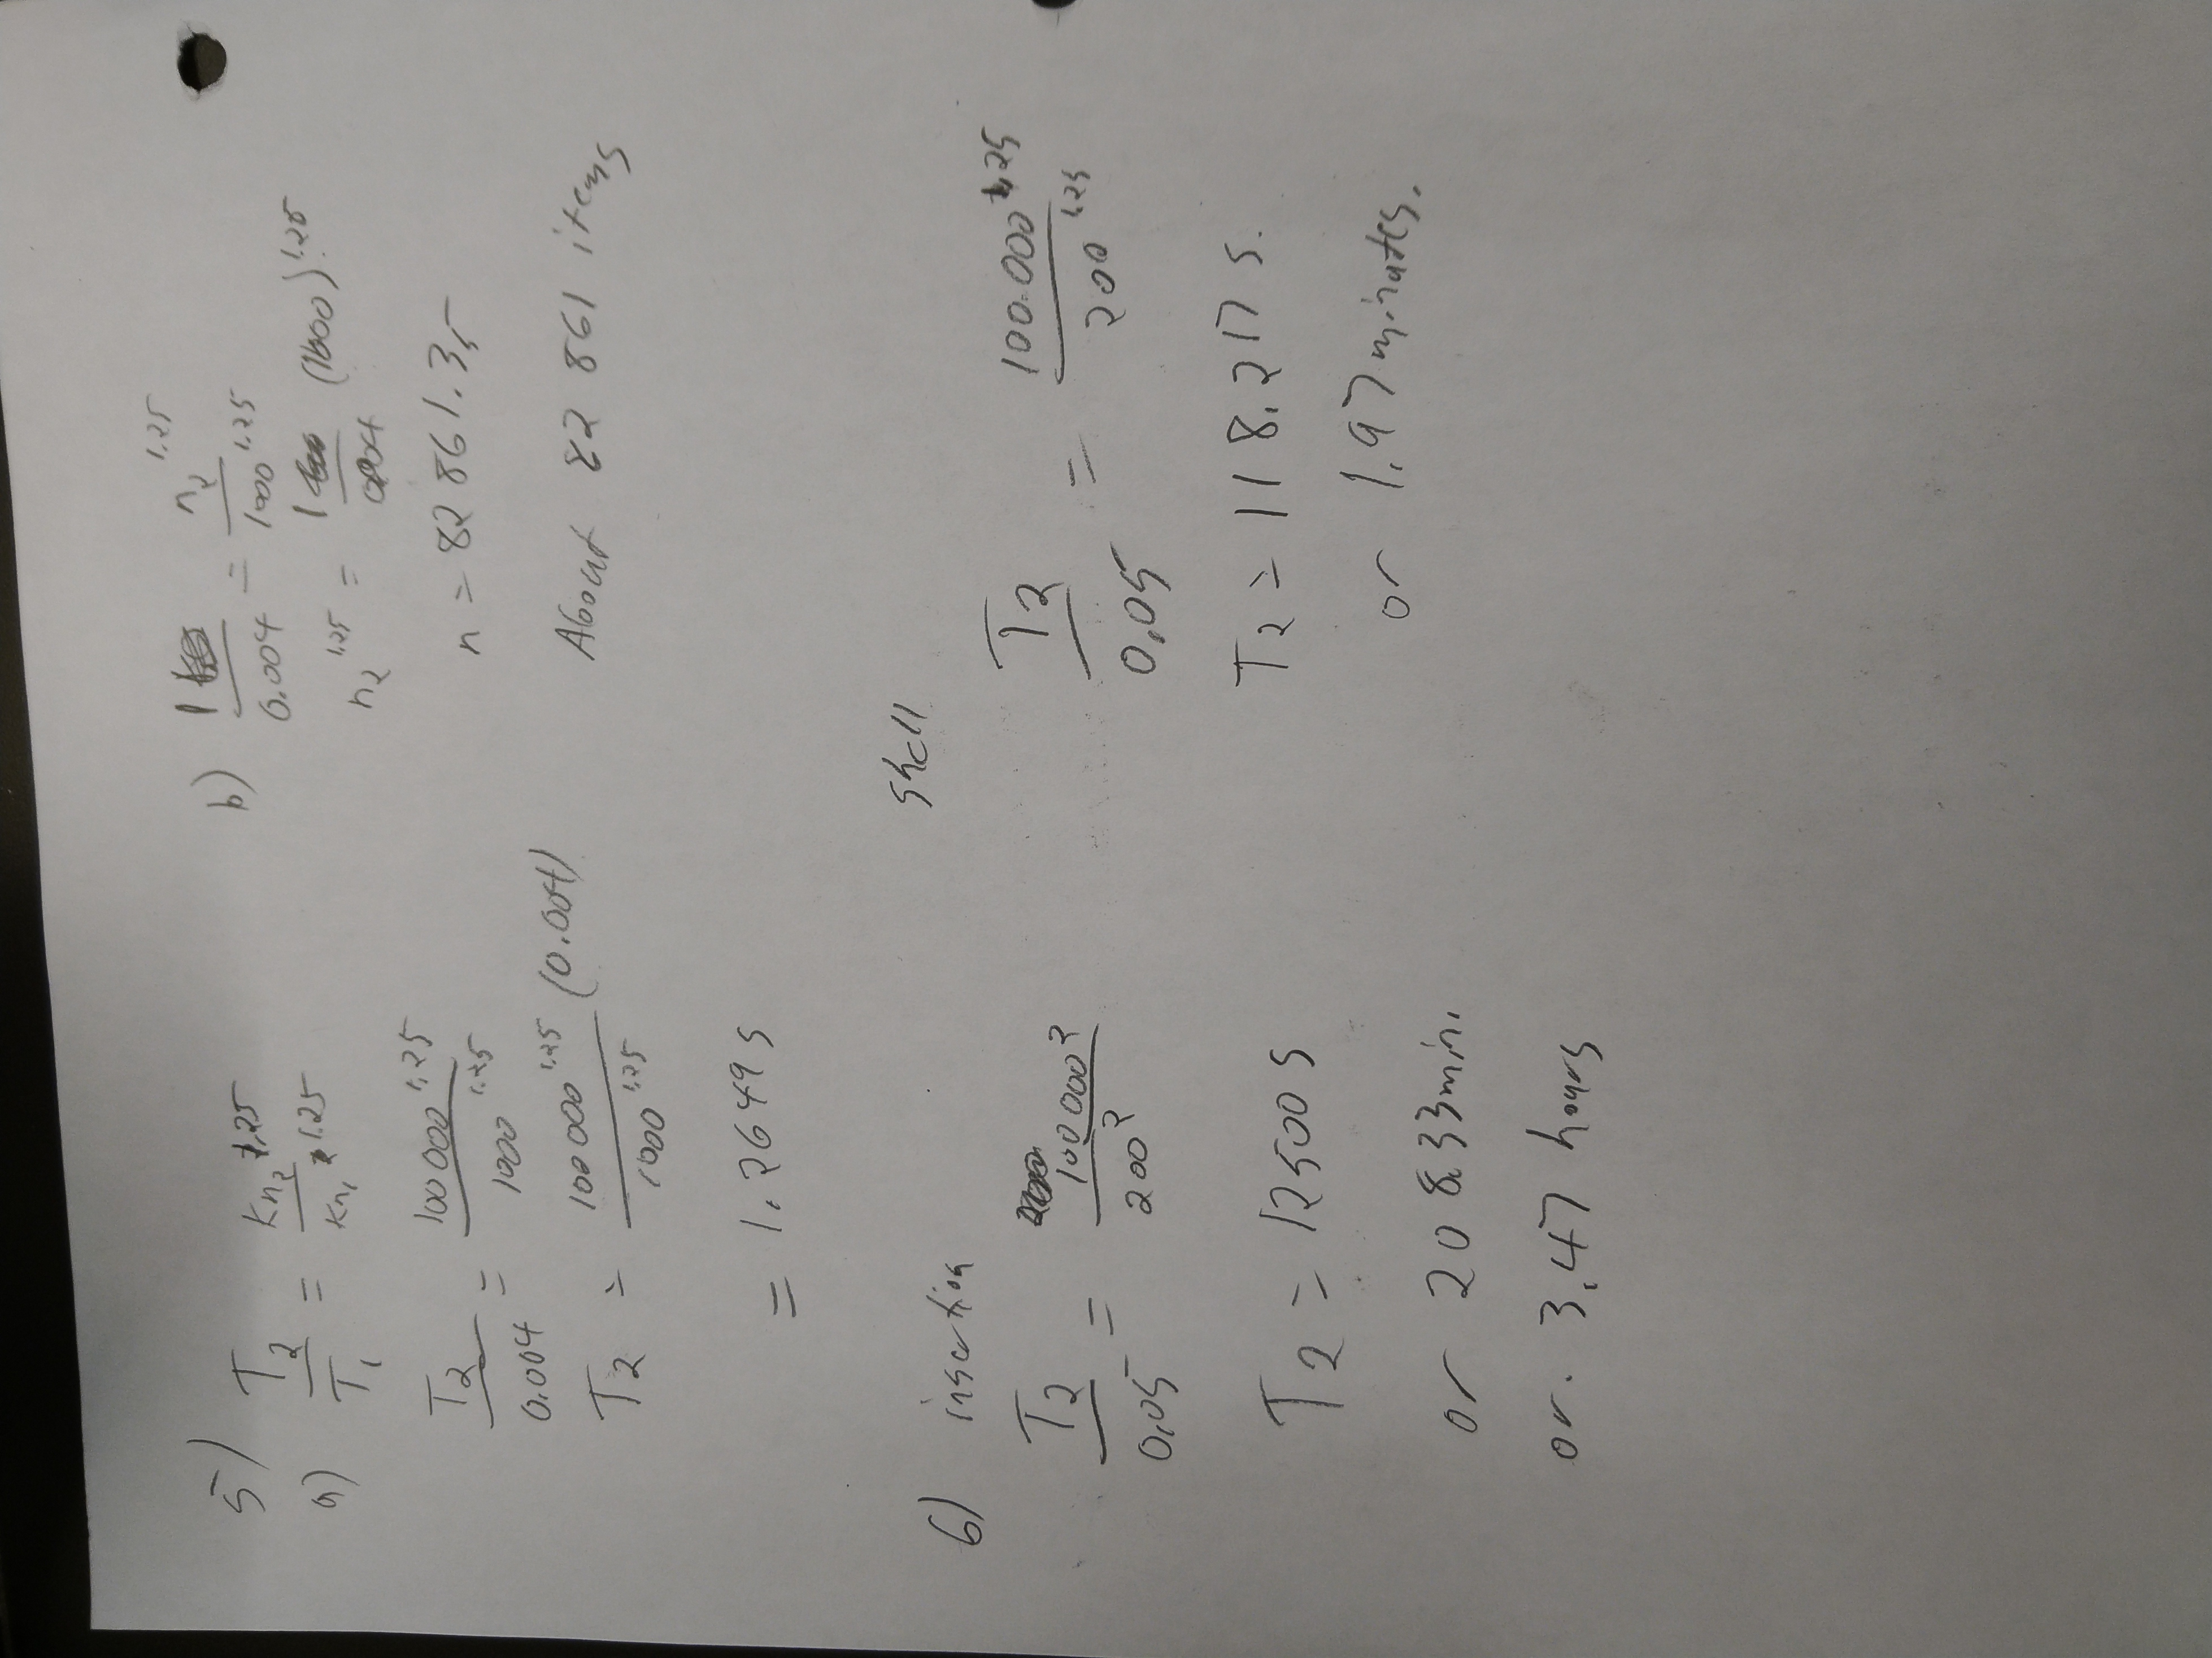 5)
a) T2 / T1 = kn2^1.25 / kn1^1.25
T2 / 0.004 = 100 000^1.25 / 1000^1.25
T2 = 100 000^1.25 (0.004) / 1000^1.25
= 1.2649 s
b) 1 / 0.004 = n2^1.25 / 1000^1.25
n2^1.25 = 1 / 0.004 (1000)^1.25
n = 82 861.35
About 82 861 items
6) insertion
T2 / 0.05 = 100 000² / 200²
T2 = 12500 s
or 208.33 min.
or. 3.47 hours
shell
T2 / 0.05 = 100.000^1.25 / 200^1.25
T2 = 118.217 s.
or 1.97 minutes.